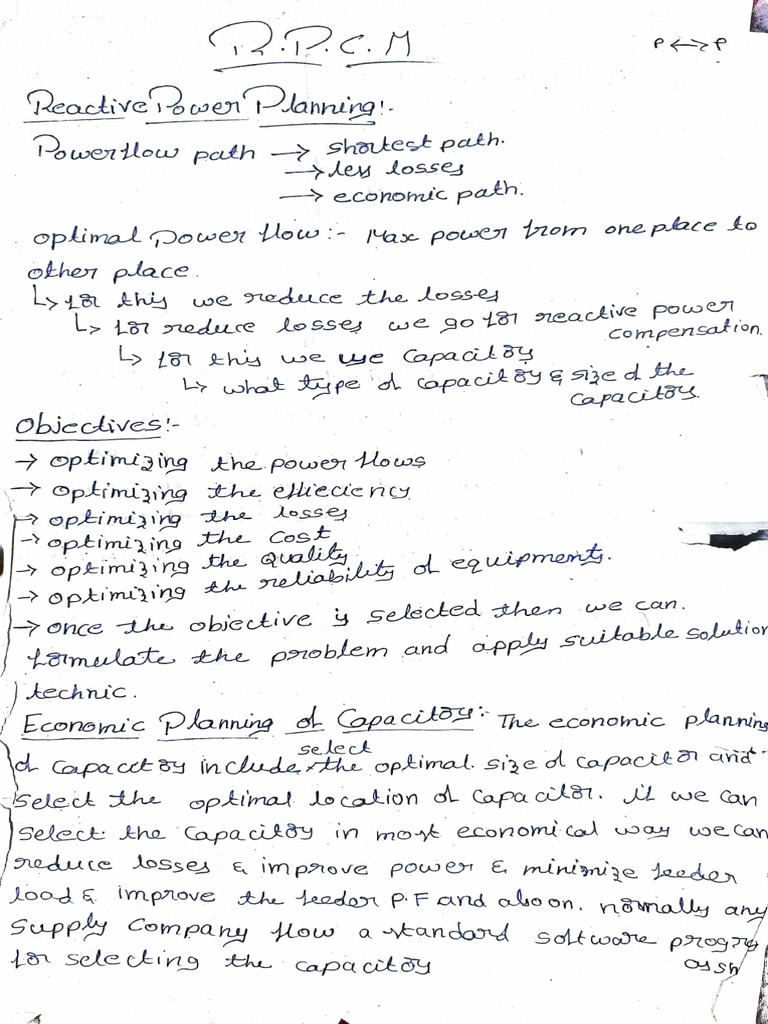 R.P.C.M
P <-> P
Reactive Power Planning:-
Powerflow path → shortest path.
→ less losses
→ economic path.
optimal power flow:- Max power from one place to
other place.
↳ for this we reduce the losses
↳ for reduce losses we go for reactive power
compensation.
↳ for this we use capacitor
↳ what type of capacitor & size of the
capacitor.
Objectives:-
→ optimizing the power flows
→ optimizing the effieciency
→ optimizing the losses
→ optimizing the cost
→ optimizing the Quality
→ optimizing the reliability of equipments.
→ once the objective is selected then we can.
formulate the problem and apply suitable solution
technic.
Economic Planning of Capacitor:- The economic planning
select
of capacctor include the optimal size of capacitor and
select the optimal location of capacitor. if we can
select the capacitor in most economical way we can
reduce losses & improve power & minimize feeder
load & improve the feeder P.F and also on. normally any
supply company flow a standard software progra
for selecting the capacitor